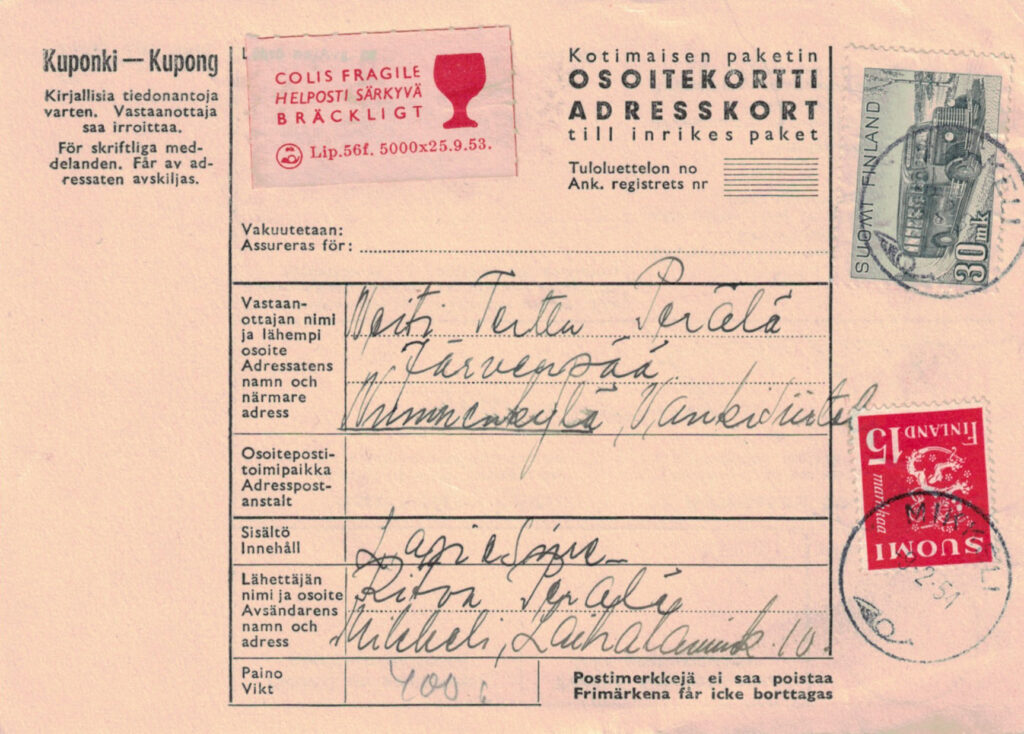 Kuponki — Kupong
Kirjallisia tiedonantoja
varten. Vastaanottaja
saa irroittaa.
För skriftliga med-
delanden. Får av ad-
ressaten avskiljas.
COLIS FRAGILE
HELPOSTI SÄRKYVÄ
BRÄCKLIGT
Lip.56f. 5000x25.9.53.
Kotimaisen paketin
OSOITEKORTTI
ADRESSKORT
till inrikes paket
Tuloluettelon no
Ank. registrets nr
SUOMI FINLAND
30mk
KELI
Vakuutetaan:
Assureras för:
Vastaan-
ottajan nimi
ja lähempi
osoite
Adressatens
namn och
närmare
adress
Neiti Terttu Perälä
Järvenpää
Nummenkylä,
Osoiteposti-
toimipaikka
Adresspost-
anstalt
Sisältö
Innehåll
Lähettäjän
nimi ja osoite
Avsändarens
namn och
adress
Ritva Perälä
Mikkeli, 10
15
FINLAND
markkaa
SUOMI
MIKKELI
2.54
Paino
Vikt
400 g
Postimerkkejä ei saa poistaa
Frimärkena får icke borttagas